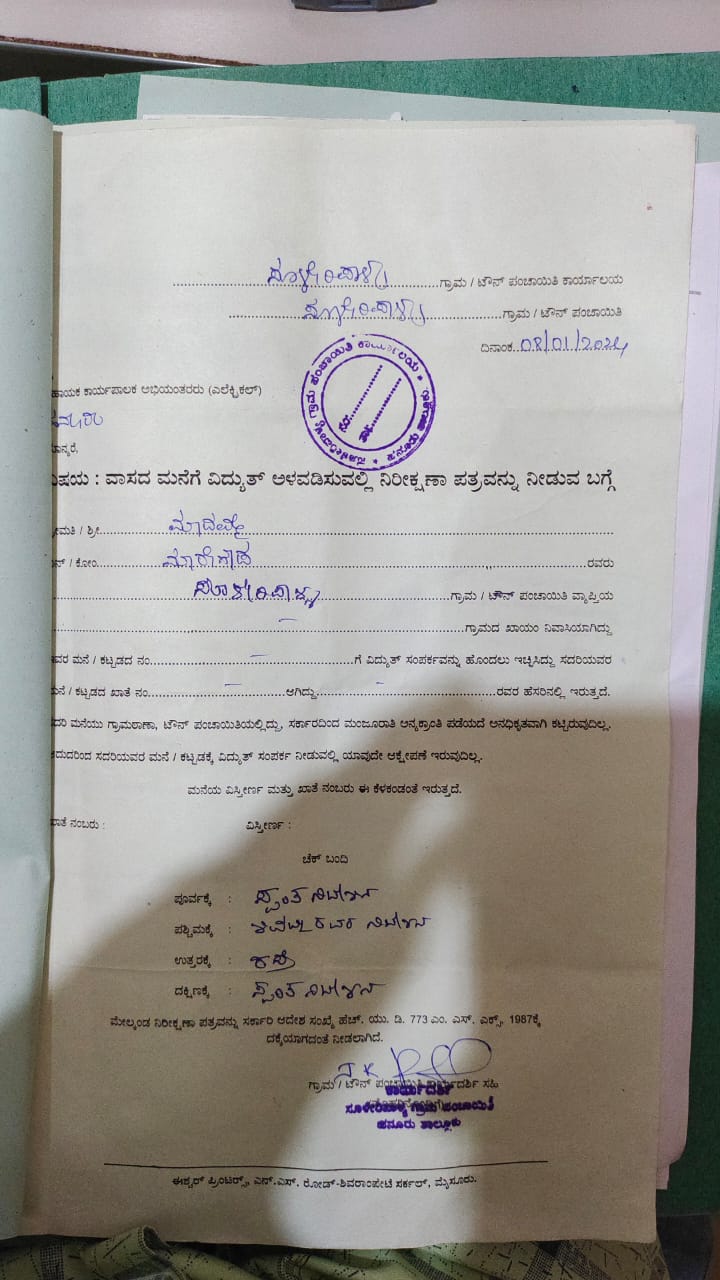 ಸೂಳೇರಿಪಾಳ್ಯ ಗ್ರಾಮ / ಟೌನ್ ಪಂಚಾಯಿತಿ ಕಾರ್ಯಾಲಯ
ಸೂಳೇರಿಪಾಳ್ಯ ಗ್ರಾಮ / ಟೌನ್ ಪಂಚಾಯಿತಿ
ದಿನಾಂಕ 08/01/2024
ಗ್ರಾಮ ಪಂಚಾಯಿತಿ ಕಾರ್ಯಾಲಯ
ನಂ:
ಹಾಯಕ ಕಾರ್ಯಪಾಲಕ ಅಭಿಯಂತರರು (ಎಲೆಕ್ಟ್ರಿಕಲ್)
ಮಾನ್ಯರೆ,
ವಿಷಯ : ವಾಸದ ಮನೆಗೆ ವಿದ್ಯುತ್ ಅಳವಡಿಸುವಲ್ಲಿ ನಿರೀಕ್ಷಣಾ ಪತ್ರವನ್ನು ನೀಡುವ ಬಗ್ಗೆ
ಶ್ರೀಮತಿ / ಶ್ರೀ ಮಾದಮ್ಮ
ನ್ / ಕೋಂ ಮಾರೇಗೌಡ ರವರು
ಸೂಳೇರಿಪಾಳ್ಯ ಗ್ರಾಮ / ಟೌನ್ ಪಂಚಾಯಿತಿ ವ್ಯಾಪ್ತಿಯ
ಗ್ರಾಮದ ಖಾಯಂ ನಿವಾಸಿಯಾಗಿದ್ದು
ವರ ಮನೆ / ಕಟ್ಟಡದ ನಂ. ಗೆ ವಿದ್ಯುತ್ ಸಂಪರ್ಕವನ್ನು ಹೊಂದಲು ಇಚ್ಛಿಸಿದ್ದು ಸದರಿಯವರ
ಮನೆ / ಕಟ್ಟಡದ ಖಾತೆ ನಂ. ಆಗಿದ್ದು ರವರ ಹೆಸರಿನಲ್ಲಿ ಇರುತ್ತದೆ.
ದರಿ ಮನೆಯು ಗ್ರಾಮಠಾಣಾ, ಟೌನ್ ಪಂಚಾಯಿತಿಯಲ್ಲಿದ್ದು, ಸರ್ಕಾರದಿಂದ ಮಂಜೂರಾತಿ ಅನ್ಯಕ್ರಾಂತಿ ಪಡೆಯದೆ ಅನಧಿಕೃತವಾಗಿ ಕಟ್ಟಿರುವುದಿಲ್ಲ.
ಆದುದರಿಂದ ಸದರಿಯವರ ಮನೆ / ಕಟ್ಟಡಕ್ಕೆ ವಿದ್ಯುತ್ ಸಂಪರ್ಕ ನೀಡುವಲ್ಲಿ ಯಾವುದೇ ಆಕ್ಷೇಪಣೆ ಇರುವುದಿಲ್ಲ.
ಮನೆಯ ವಿಸ್ತೀರ್ಣ ಮತ್ತು ಖಾತೆ ನಂಬರು ಈ ಕೆಳಕಂಡಂತೆ ಇರುತ್ತದೆ.
ಖಾತೆ ನಂಬರು : ವಿಸ್ತೀರ್ಣ :
ಚೆಕ್ ಬಂದಿ
ಪೂರ್ವಕ್ಕೆ : ಸ್ವಂತ ನಿವೇಶನ
ಪಶ್ಚಿಮಕ್ಕೆ : ನಿವೇಶನ
ಉತ್ತರಕ್ಕೆ :
ದಕ್ಷಿಣಕ್ಕೆ : ಸ್ವಂತ ನಿವೇಶನ
ಮೇಲ್ಕಂಡ ನಿರೀಕ್ಷಣಾ ಪತ್ರವನ್ನು ಸರ್ಕಾರಿ ಆದೇಶ ಸಂಖ್ಯೆ ಹೆಚ್. ಯು. ಡಿ. 773 ಎಂ. ಎಸ್. ಎಕ್ಸ್. 1987ಕ್ಕೆ
ದಕ್ಕೆಯಾಗದಂತೆ ನೀಡಲಾಗಿದೆ.
ಗ್ರಾಮ / ಟೌನ್ ಪಂಚಾಯಿತಿ ಕಾರ್ಯದರ್ಶಿ ಸಹಿ
ಕಾರ್ಯದರ್ಶಿ
ಸೂಳೇರಿಪಾಳ್ಯ ಗ್ರಾಮ ಪಂಚಾಯಿತಿ
ಹನೂರು ತಾಲ್ಲೂಕು
ಈಶ್ವರ್ ಪ್ರಿಂಟರ್ಸ್, ಎನ್.ಎಸ್. ರೋಡ್-ಶಿವರಾಂಪೇಟೆ ಸರ್ಕಲ್, ಮೈಸೂರು.